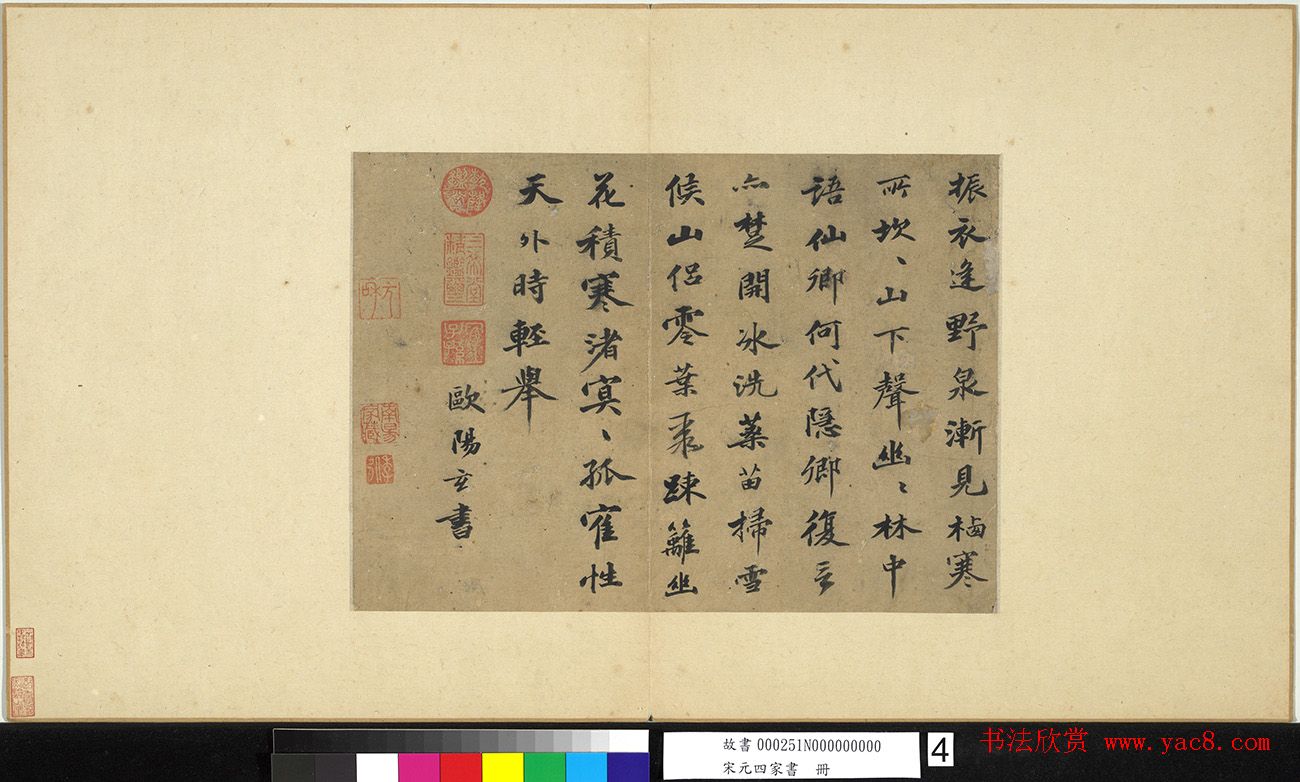 振衣逢野泉漸見栖寒
所坎、山下聲幽、林中
語仙卿何代隱卿復言
亦楚開冰洗藥苗掃雪
候山侶零葉聚踈籬幽
花積寒渚冥、孤隺性
天外時輕舉
歐陽玄書
乾隆鑑賞
三希堂精鑑璽
宜子孫
故書 000251N000000000
宋元四家書 冊
4
书法欣赏 www.yac8.com